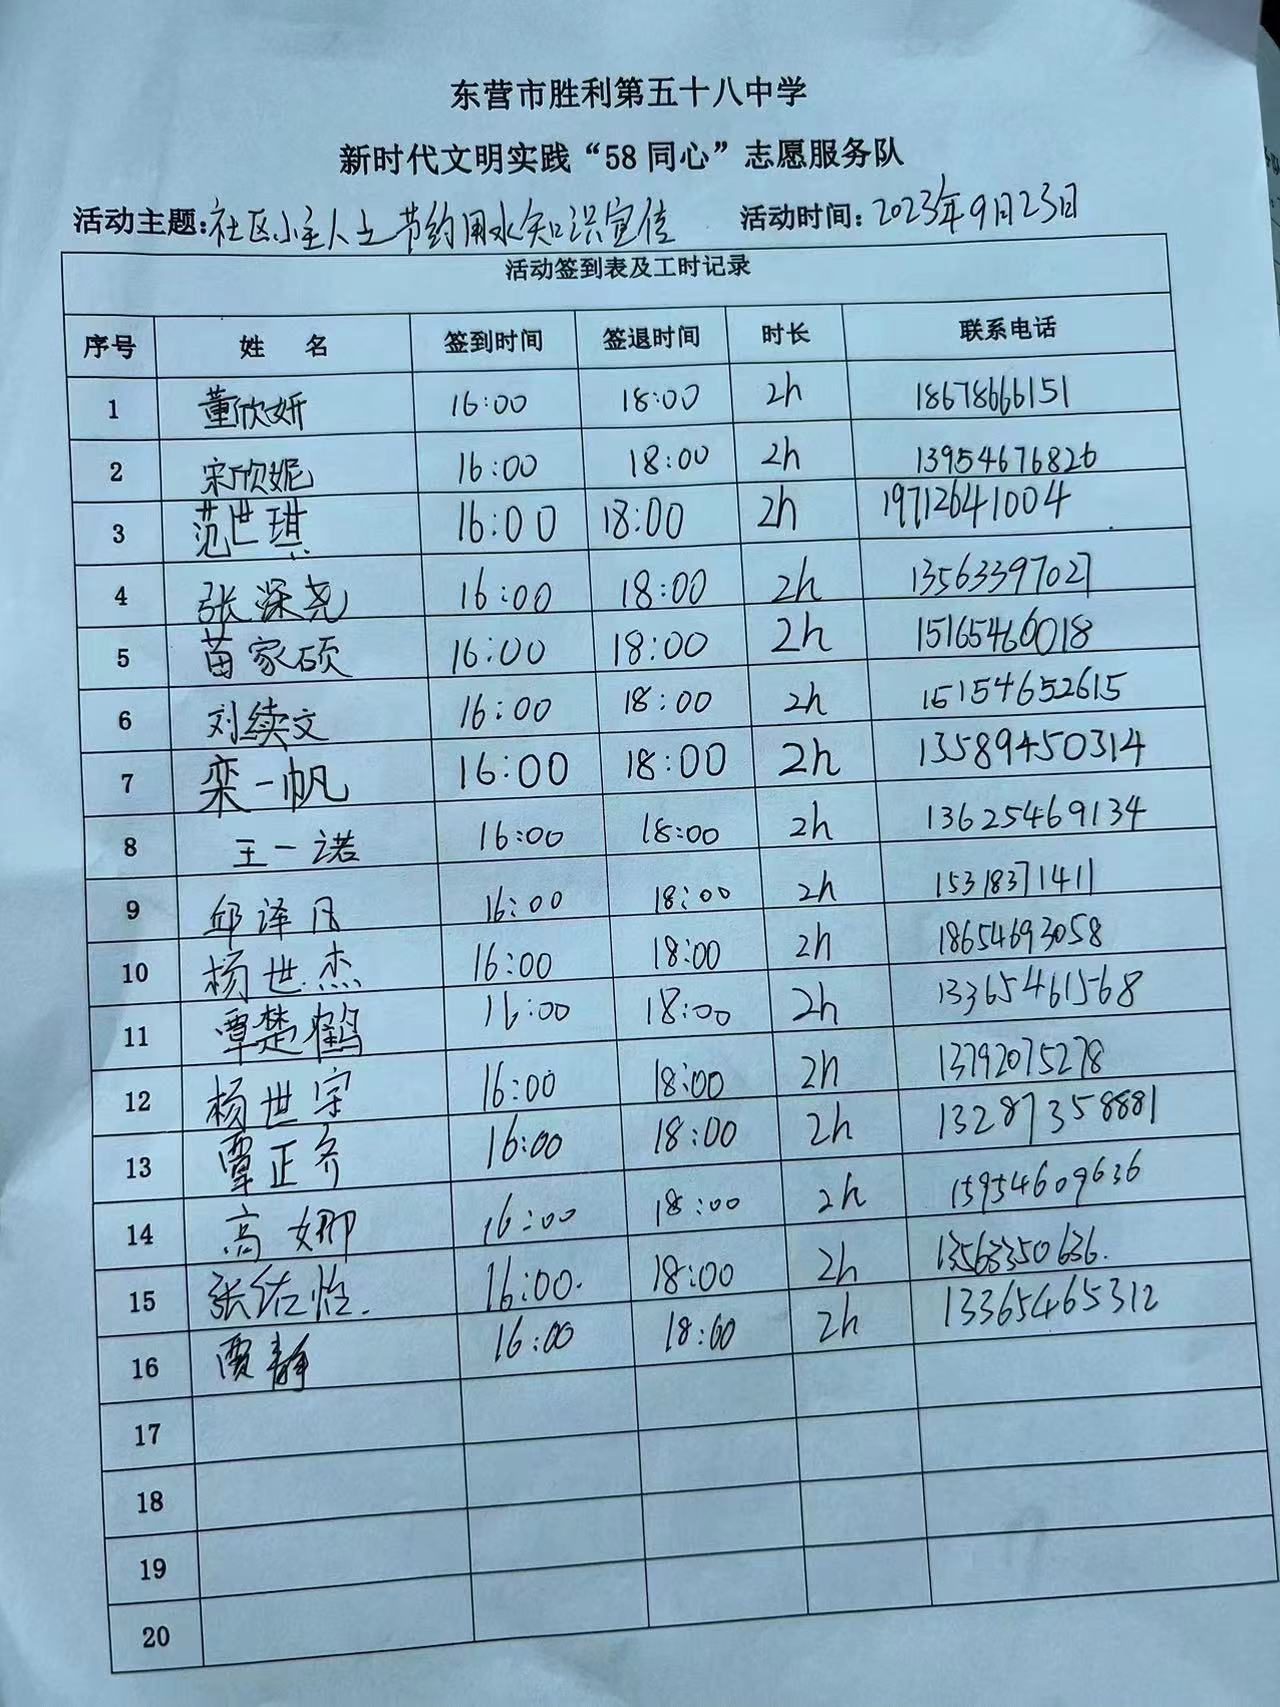 东营市胜利第五十八中学
新时代文明实践“58同心”志愿服务队
活动主题:社区小主人之节约用水知识宣传 活动时间:2023年9月23日
活动签到表及工时记录
序号 姓 名 签到时间 签退时间 时长 联系电话
1 董欣妍 16:00 18:00 2h 18678666151
2 宋欣妮 16:00 18:00 2h 13954676826
3 范世琪 16:00 18:00 2h 19712641004
4 张深尧 16:00 18:00 2h 13563397027
5 苗家硕 16:00 18:00 2h 15165460018
6 刘续文 16:00 18:00 2h 15154652615
7 栾一帆 16:00 18:00 2h 13589450314
8 王一诺 16:00 18:00 2h 13625469134
9 邱泽凡 16:00 18:00 2h 15318371411
10 杨世杰 16:00 18:00 2h 18654693058
11 覃楚鹤 16:00 18:00 2h 13365461568
12 杨世宇 16:00 18:00 2h 13792075278
13 覃正齐 16:00 18:00 2h 13287358881
14 高娜 16:00 18:00 2h 15954609636
15 张佑怡. 16:00. 18:00 2h 13563350636.
16 贾静 16:00 18:00 2h 13365465312
17
18
19
20